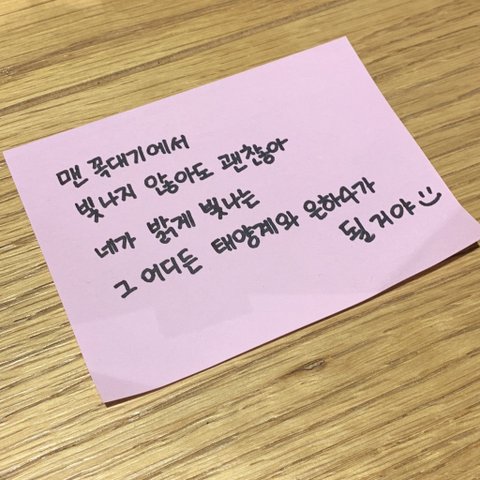 맨 꼭대기에서
빛나지 않아도 괜찮아
네가 밝게 빛나는
그 어디든 태양계와 은하수가
될 거야